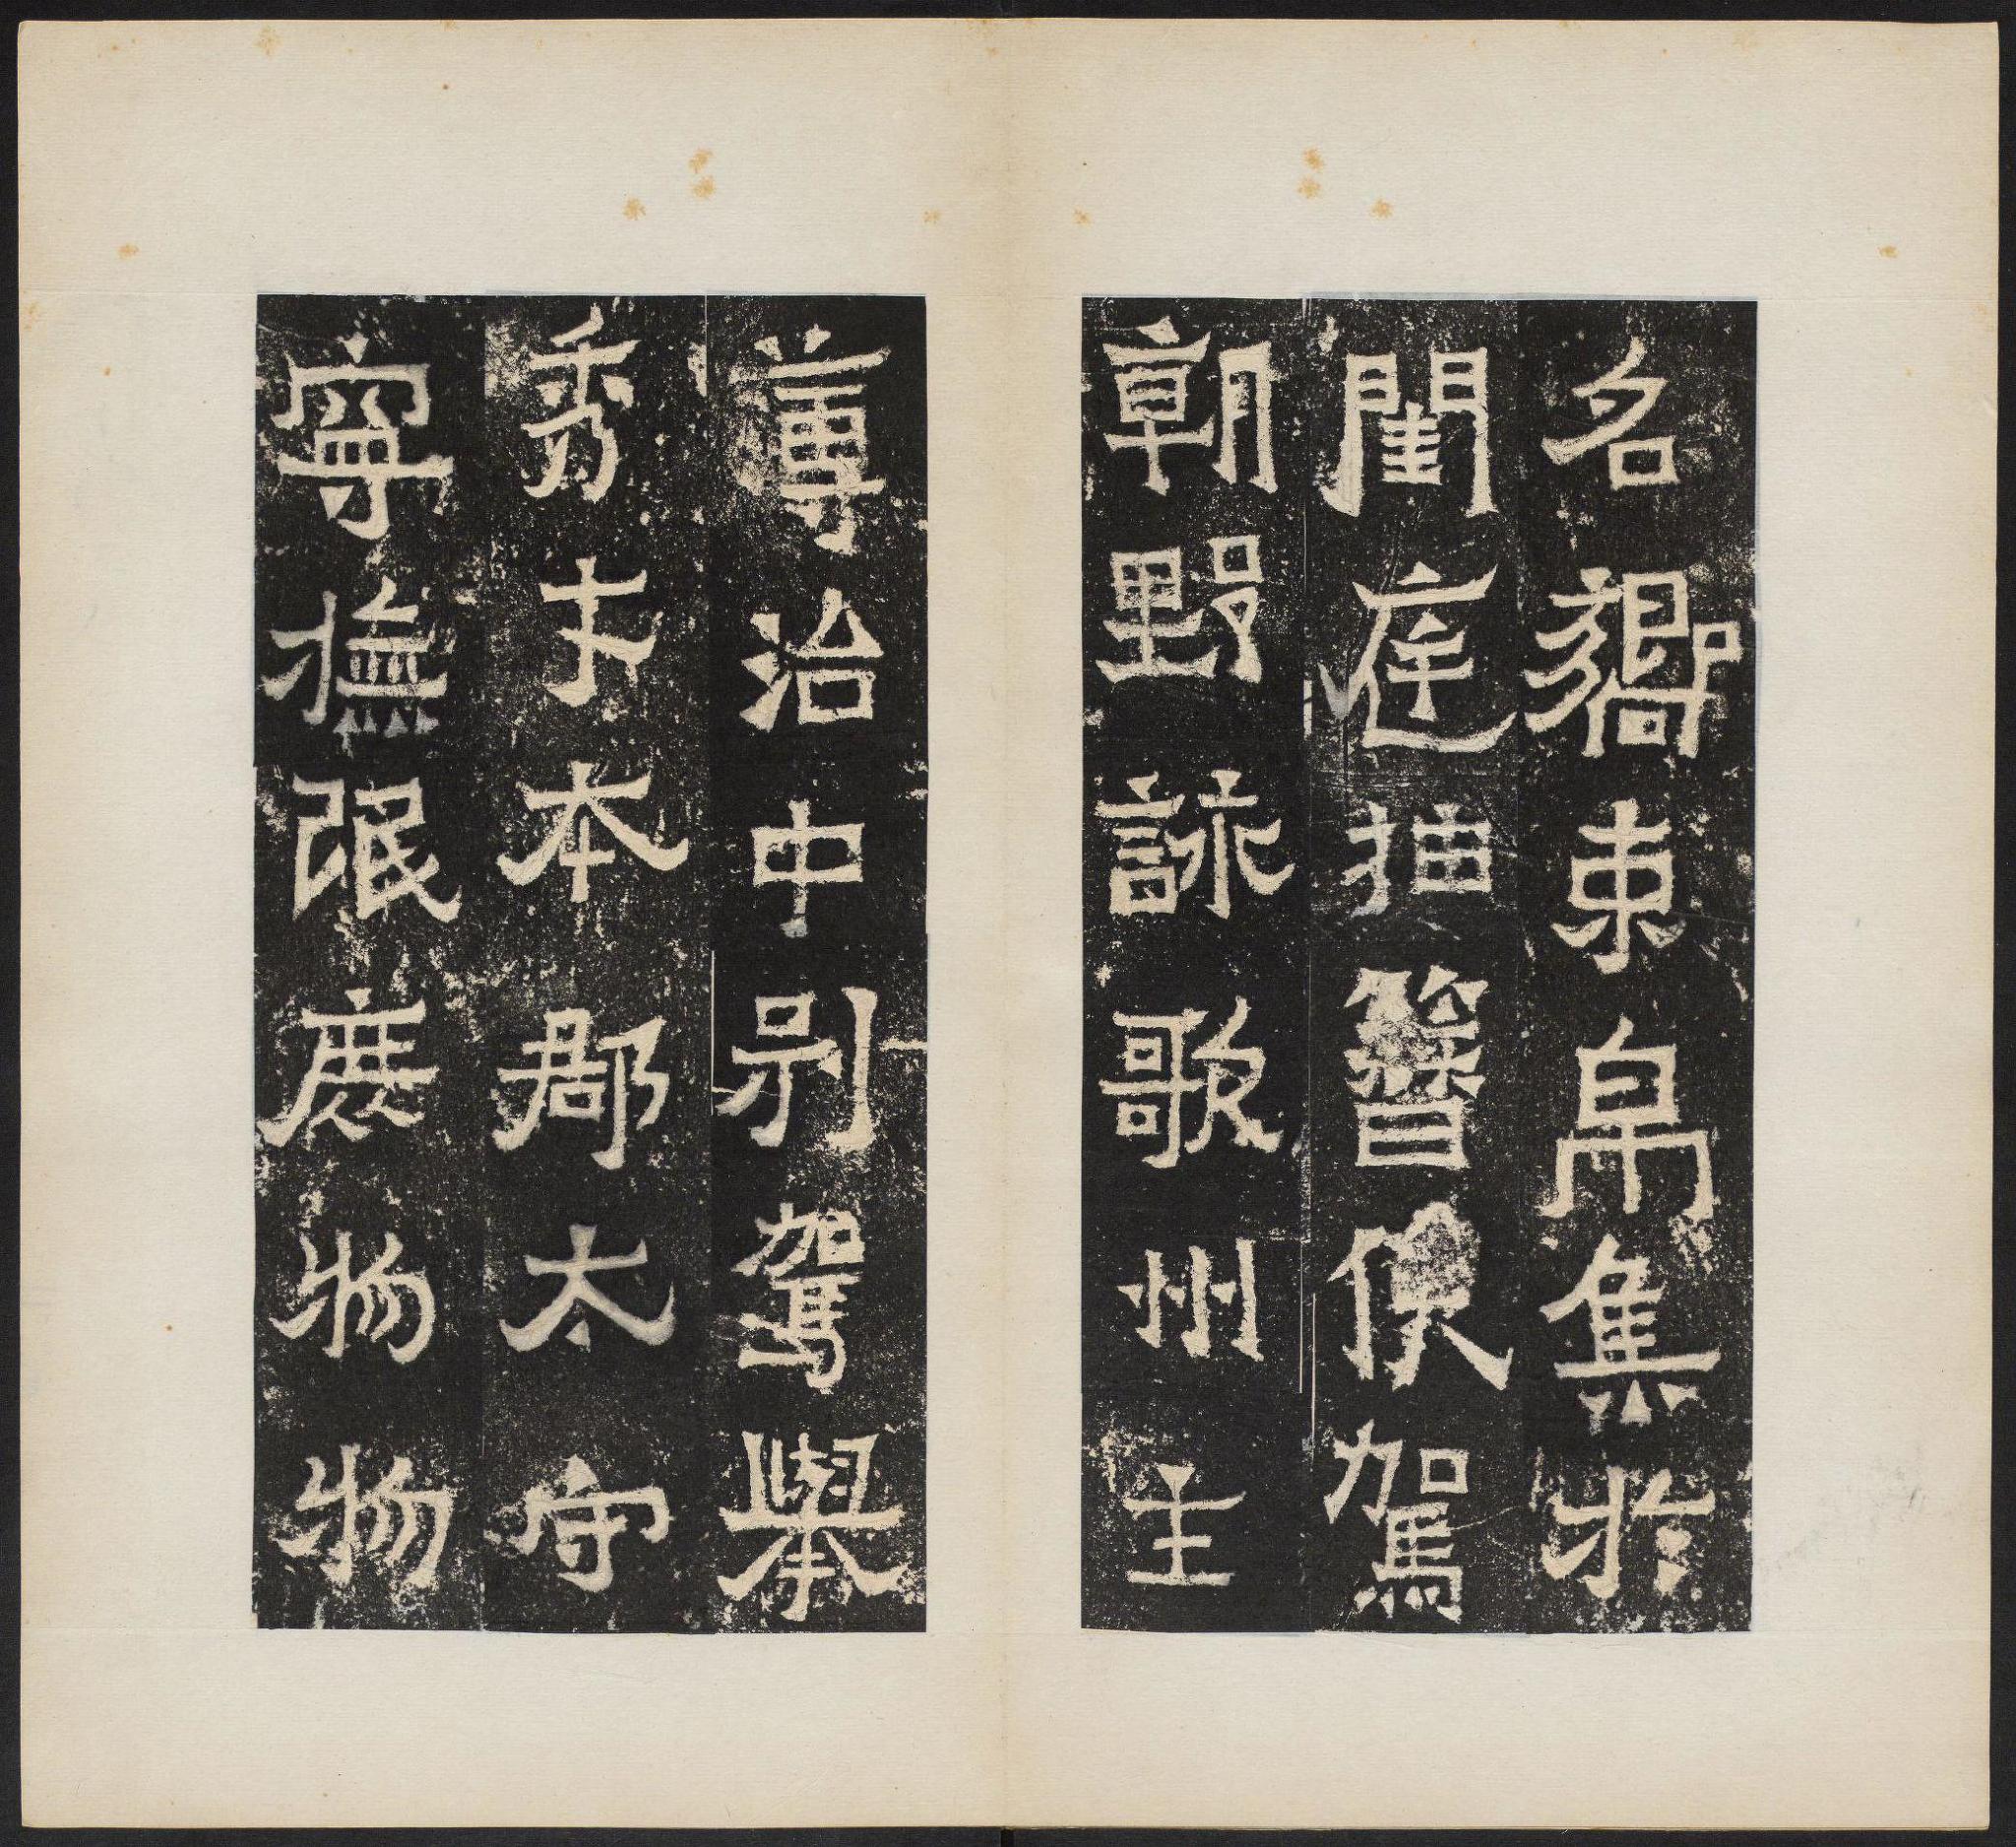 名嚮束帛集於
閨庭抽簪俟駕
朝野詠歌州主
簿治中別駕舉
秀才本郡太守
寧撫氓庶物物